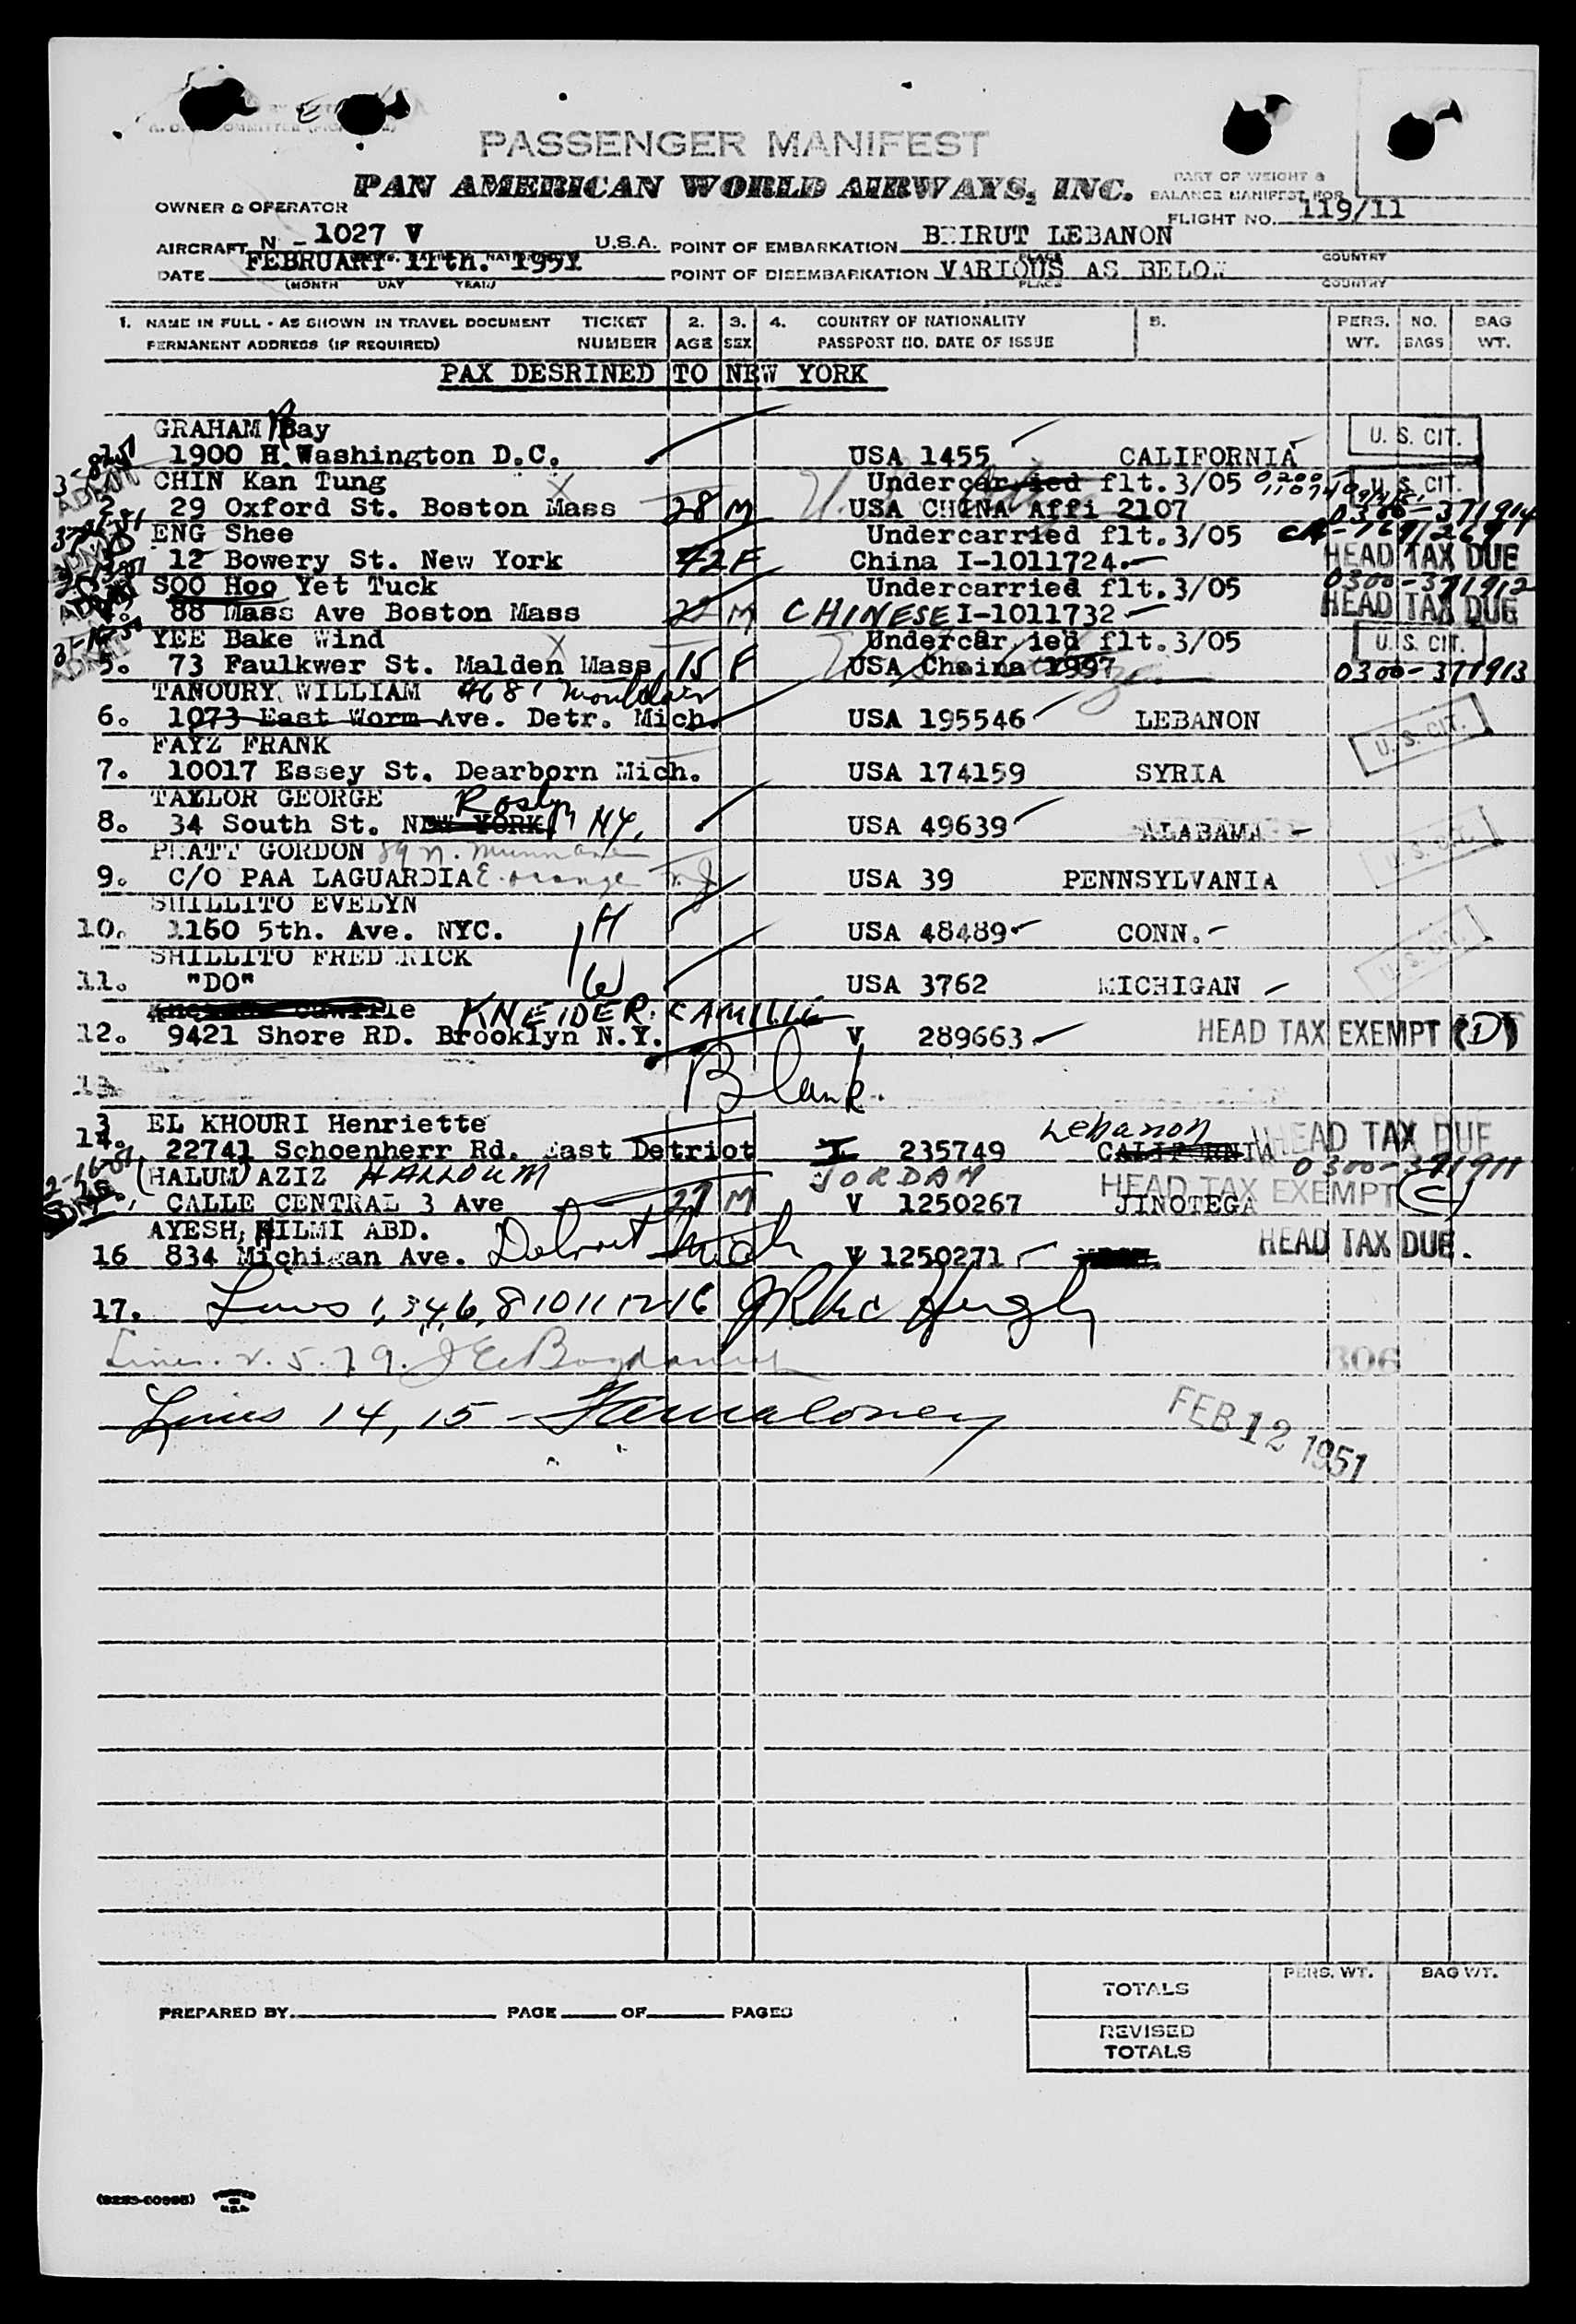 PASSENGER MANIFEST
PAN AMERICAN WORLD AIRWAYS, INC.
PART OF WEIGHT &
BALANCE MANIFEST FOR
FLIGHT NO. 119/11
OWNER & OPERATOR
AIRCRAFT N - 1027 V U.S.A. POINT OF EMBARKATION BEIRUT LEBANON
PLACE COUNTRY
DATE FEBRUARY 11th. 1951 POINT OF DISEMBARKATION VARIOUS AS BELOW
(MONTH DAY YEAR) PLACE COUNTRY
1. NAME IN FULL - AS SHOWN IN TRAVEL DOCUMENT TICKET 2. 3. 4. COUNTRY OF NATIONALITY 5. PERS. NO. BAG
PERMANENT ADDRESS (IF REQUIRED) NUMBER AGE SEX PASSPORT NO. DATE OF ISSUE WT. BAGS WT.
PAX DESRINED TO NEW YORK
GRAHAM Ray U. S. CIT.
1900 H Washington D.C. USA 1455 CALIFORNIA
CHIN Kan Tung X Undercarried flt.3/05 U. S. CIT.
2 29 Oxford St. Boston Mass 28 M USA CHINA Affi 2107 0300-371914
ENG Shee Undercarried flt.3/05
12 Bowery St. New York 42 F China I-1011724. HEAD TAX DUE
SOO Hoo Yet Tuck Undercarried flt.3/05 0300-371912
88 Mass Ave Boston Mass 22 M CHINESE I-1011732 HEAD TAX DUE
YEE Bake Wind X Undercar ied flt.3/05 U. S. CIT.
5. 73 Faulkwer St. Malden Mass 15 F USA Chaina 1997 0300-371913
TANOURY WILLIAM 4681
6. 1073 East Worm Ave. Detr. Mich. USA 195546 LEBANON U. S. CIT.
FAYZ FRANK
7. 10017 Essey St. Dearborn Mich. USA 174159 SYRIA
TAYLOR GEORGE Roslyn
8. 34 South St. NEW YORK N.Y. USA 49639 ALABAMA U. S. CIT.
PRATT GORDON 89 N. Munn Ave
9. C/O PAA LAGUARDIA E. Orange N.J. USA 39 PENNSYLVANIA
SHILLITO EVELYN
10. 1160 5th. Ave. NYC. H USA 48489 CONN. U. S. CIT.
SHILLITO FRED RICK
11. "DO" W USA 3762 MICHIGAN
KNEIDER. CAMILLE
12. 9421 Shore RD. Brooklyn N.Y. V 289663 HEAD TAX EXEMPT (D)
13. Blank.
3 EL KHOURI Henriette Lebanon HEAD TAX DUE
14. 22741 Schoenherr Rd. East Detriot I 235749 CALIFORNIA 0300-371911
(HALUM) AZIZ HALLOUM JORDAN HEAD TAX EXEMPT (C)
CALLE CENTRAL 3 Ave 27 M V 1250267 JINOTEGA
AYESH, HILMI ABD.
16 834 Michigan Ave. Detroit Mich V 1250271 HEAD TAX DUE.
17. Lines 1, 3 4, 6, 8 10 11 12 16 JR Mc Hugh
Lines. 2. 5. 7 9.
306
Lines 14, 15 -
FEB 12 1951
TOTALS PERS. WT. BAG WT.
PREPARED BY PAGE OF PAGES
REVISED
TOTALS
PRINTED
IN
U.S.A.